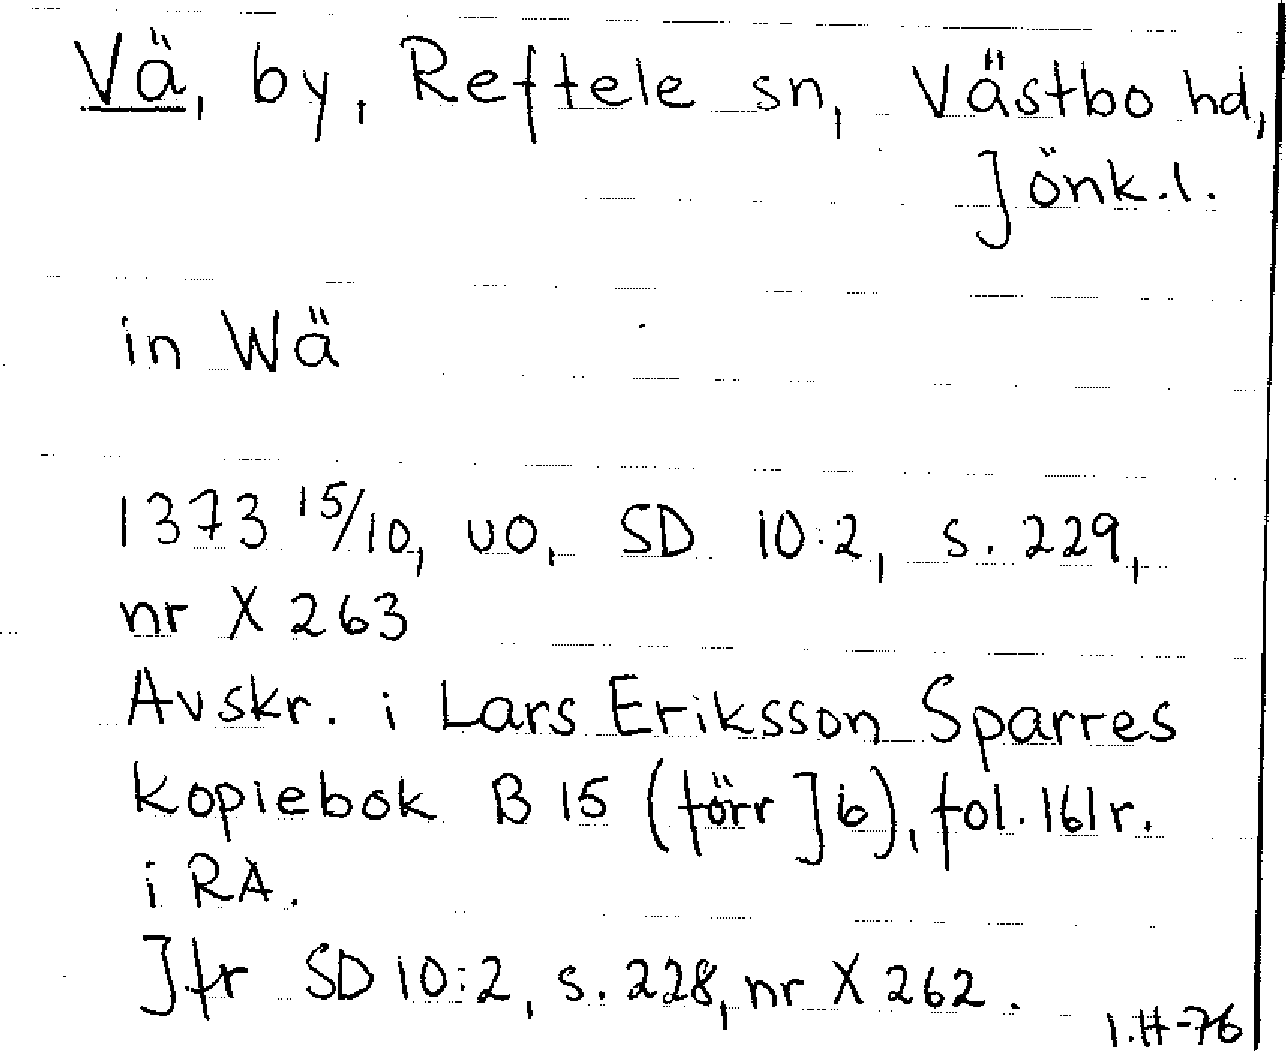 Vä, by, Reftele sn, Västbo hd,
Jönk.l.
in Wä
1373 15/10, uo, SD 10:2, s. 229,
nr X 263
Avskr. i Lars Eriksson Sparres
kopiebok B 15 (förr J6), fol. 161r.
i RA.
Jfr SD 10:2, s. 228, nr X 262.
I.H-76